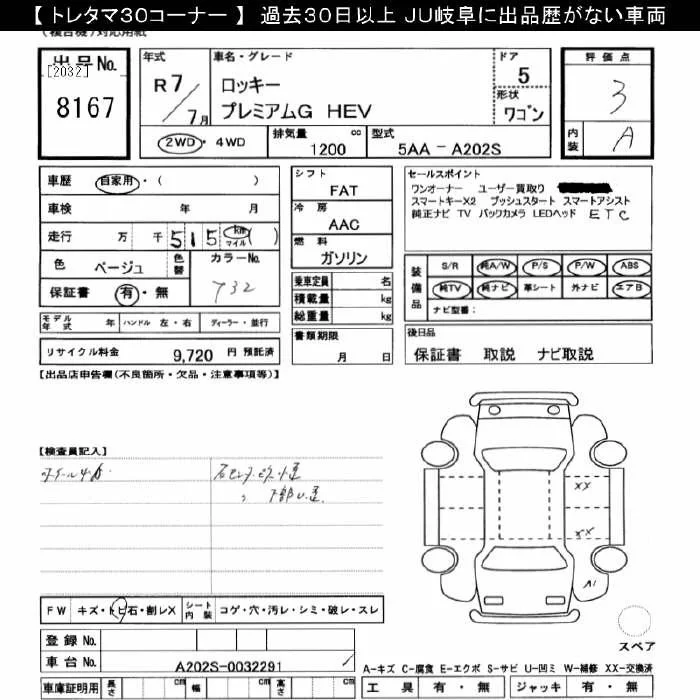 【 トレタマ30コーナー 】 過去30日以上 JU岐阜に出品歴がない車両
(複合機)対応用紙
出品No.
[2032]
8167
年式
R 7
7 月
車名・グレード
ロッキー
プレミアムG HEV
ドア
5
形状
ワゴン
評価点
3
内装
A
2WD ・ 4WD
排気量 cc
1200
型式
5AA - A202S
車歴 自家用・( )
車検 年 月
走行 万 千 5 1 5 km マイル ( )
色 ベージュ 色替
カラーNo.
732
保証書 有・無
モデル年式 年 ハンドル 左・右 ディーラー・並行
リサイクル料金 9,720 円 預託済
シフト
FAT
冷房
AAC
燃料
ガソリン
乗車定員 名
積載量 kg
総重量 kg
書類期限
月 日
セールスポイント
ワンオーナー ユーザー買取り
スマートキーX2 プッシュスタート スマートアシスト
純正ナビ TV バックカメラ LEDヘッド ETC
装備品
S/R 純A/W P/S P/W ABS
純TV 純ナビ 革シート 外ナビ エアB
ナビ型番:
後日品
保証書 取説 ナビ取説
【出品店申告欄(不良箇所・欠品・注意事項等)】
【検査員記入】
XX
XX
A1
FW キズ・トビ石・割レX シート内装 コゲ・穴・汚レ・シミ・破レ・スレ
登録 No.
車台 No. A202S-0032291
車庫証明用 長さ cm 幅 cm 高さ cm
スペア
A-キズ C-腐食 E-エクボ S-サビ U-凹ミ W-補修 XX-交換済
工具 有・無 ジャッキ 有・無